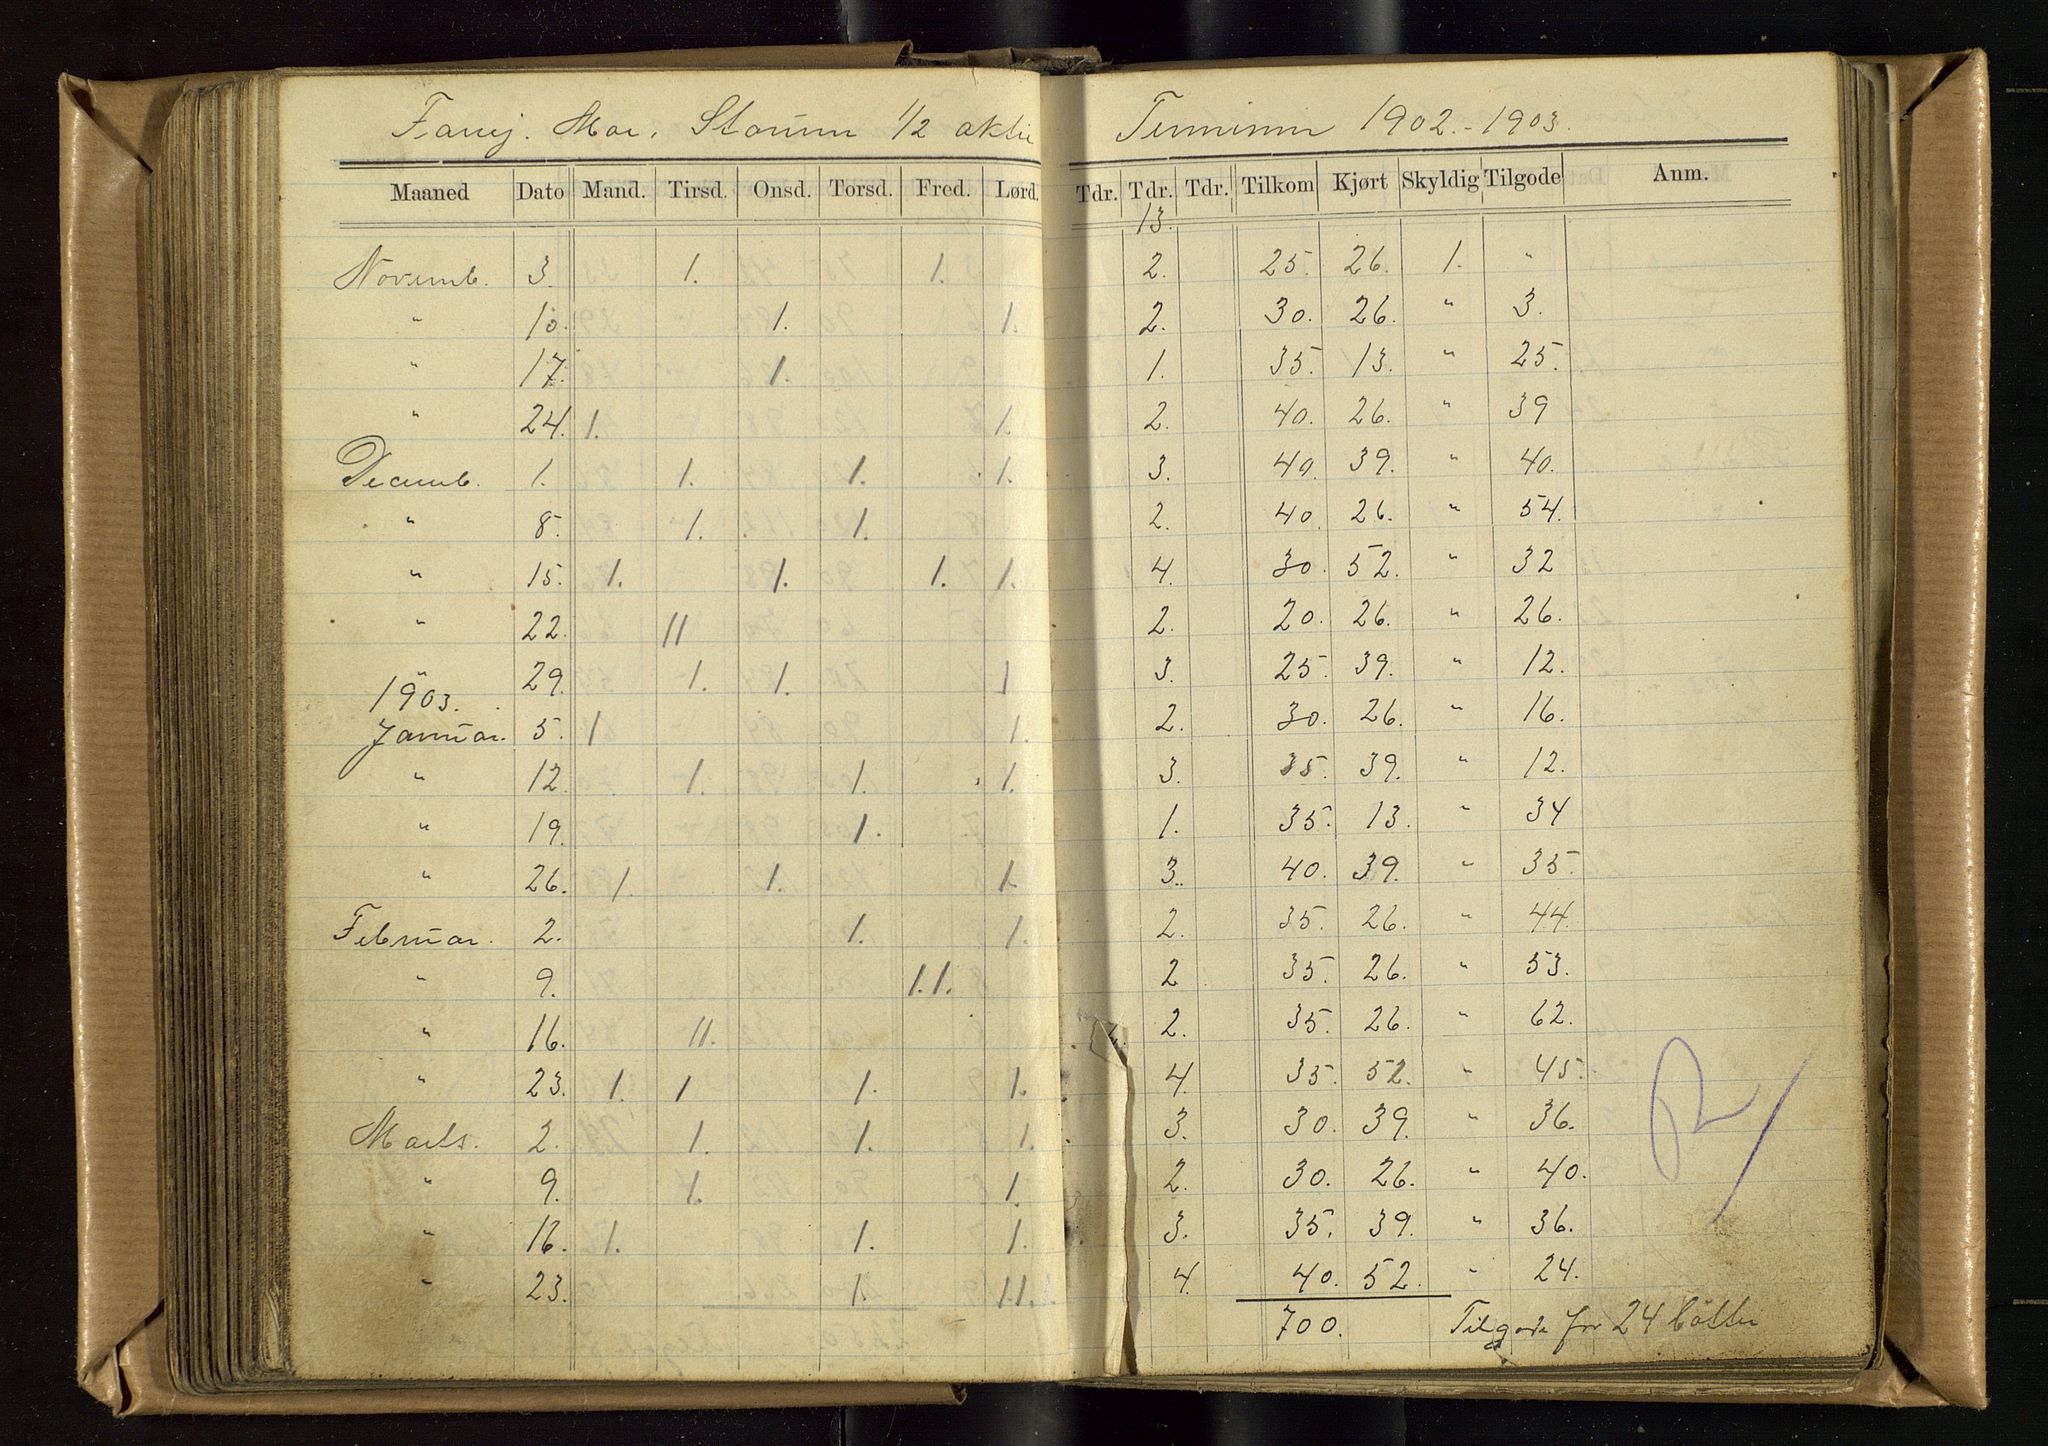 Farvj. Mar. Storum 1/2 aktie Terminen 1902.-1903.
Maaned Dato Mand. Tirsd. Onsd. Torsd. Fred. Lørd. Tdr. Tdr. Tdr. Tilkom Kjørt Skyldig Tilgode Anm.
13.
Novemb. 3. 1. 1. 2. 25. 26. 1. "
" 10. 1. 1. 2. 30. 26. " 3.
" 17. 1. 1. 35. 13. " 25.
" 24. 1. 1. 2. 40. 26. " 39
Decemb. 1. 1. 1. 1. 3. 40. 39. " 40.
" 8. 1. 1. 2. 40. 26. " 54.
" 15. 1. 1. 1. 1. 4. 30. 52. " 32
" 22. 11 2. 20. 26. " 26.
" 29. 1. 1. 1 3. 25. 39. " 12.
1903.
Januar. 5. 1 1. 2. 30. 26. " 16.
" 12. 1. 1. 1. 3. 35. 39. " 12.
" 19. 1. 1. 35. 13. " 34
" 26. 1. 1. 1. 3. 40. 39. " 35.
Februar. 2. 1. 1. 2. 35. 26. " 44.
" 9. 1.1. 2 35. 26. " 53.
" 16. 11. 2. 35. 26. " 62.
" 23. 1. 1 1. 1. 4. 35. 52. " 45.
Marts. 2. 1. 1. 1. 3. 30. 39. " 36.
" 9. 1. 1. 2. 30. 26. " 40.
" 16. 1. 1. 1. 3. 35. 39. " 36.
" 23. 1. 11. 4. 40. 52. " 24.
700. Tilgode for 24 bøtter